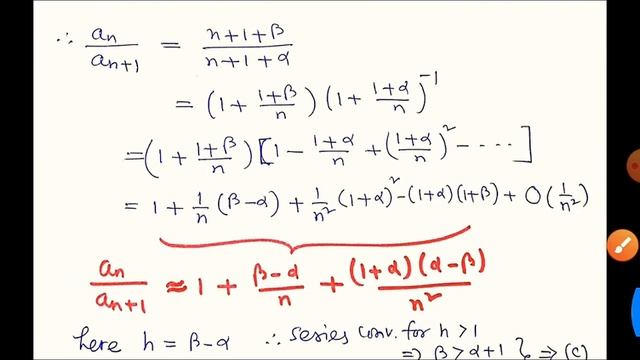 ∴ a_n / a_{n+1} = (n+1+β) / (n+1+α)
= (1 + (1+β)/n) (1 + (1+α)/n)^{-1}
= (1 + (1+β)/n) [1 - (1+α)/n + ((1+α)/n)^2 - ....]
= 1 + 1/n (β-α) + 1/n^2 (1+α)^2 - (1+α)(1+β) + O(1/n^2)
a_n / a_{n+1} ≈ 1 + (β-α)/n + (1+α)(α-β)/n^2
here h = β-α ∴ series conv. for h > 1
⇒ β > α+1 } ⇒ (c)